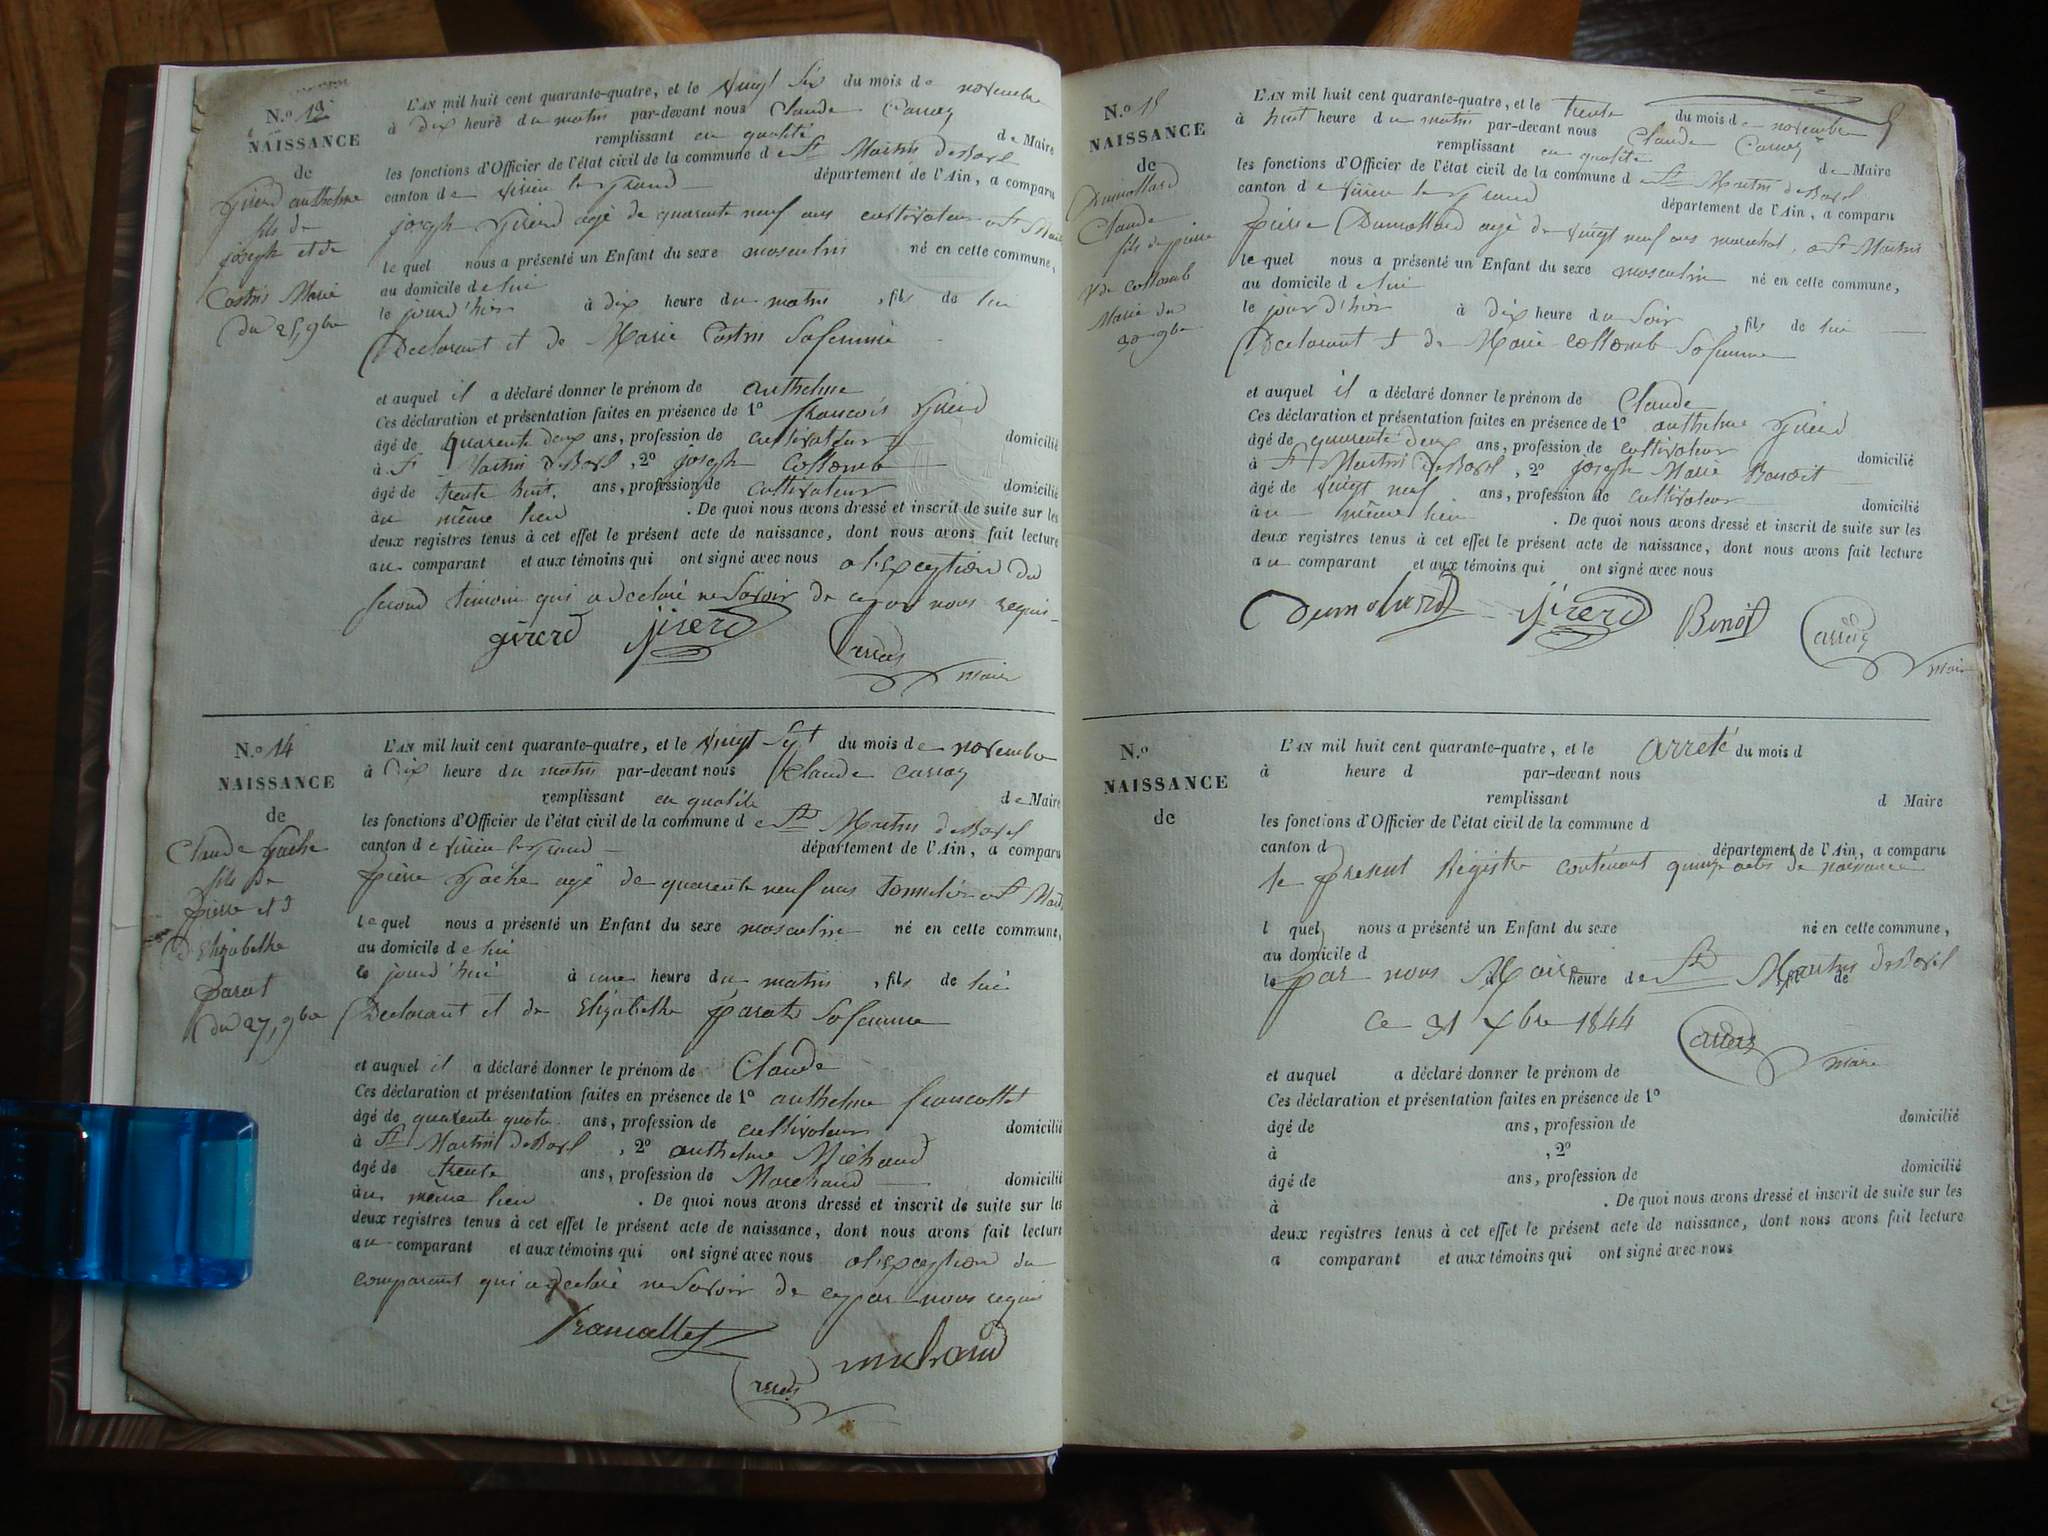 N.o 13
NAISSANCE
de
Girerd anthelme
fils de
joseph et de
Costin Marie
du 25, 9bre
L'AN mil huit cent quarante-quatre, et le vingt six du mois de novembre
à dix heure du matin par-devant nous Claude Carraz
remplissant en qualité de Maire
les fonctions d'Officier de l'état civil de la commune de St Martin de Bavel
canton de virieu le grand département de l'Ain, a comparu
joseph Girerd agé de quarante neuf ans cultivateur a St
le quel nous a présenté un Enfant du sexe masculin né en cette commune,
au domicile de lui
le jour d'hier à dix heure du matin, fils de lui
Declarant et de Marie Costin Sa femme
et auquel il a déclaré donner le prénom de anthelme
Ces déclaration et présentation faites en présence de 1° francois Girerd
âgé de quarente deux ans, profession de cultivateur domicilié
à St Martin de Bavel, 2° joseph Collomb
âgé de trente huit ans, profession de cultivateur domicilié
au même lieu. De quoi nous avons dressé et inscrit de suite sur les
deux registres tenus à cet effet le présent acte de naissance, dont nous avons fait lecture
au comparant et aux témoins qui ont signé avec nous a l'exception du
second temoin qui a declaré ne Savoir de ce par nous requis
girerd girerd Carraz maire
N.o 14
NAISSANCE
de
Claude Gache
fils de
pierre et
d'Elizabethe
parat
du 27, 9bre
L'AN mil huit cent quarante-quatre, et le vingt Sept du mois de novembre
à Dix heure du matin par-devant nous Claude Carraz
remplissant en qualité de Maire
les fonctions d'Officier de l'état civil de la commune de St Martin de Bavel
canton de virieu le grand département de l'Ain, a comparu
pierre Gache agé de quarente neuf ans tonnelier a St
le quel nous a présenté un Enfant du sexe masculin né en cette commune,
au domicile de lui
le jourd'hui à une heure du matin, fils de lui
Declarant et de Elizabethe parat Sa femme
et auquel il a déclaré donner le prénom de Claude
Ces déclaration et présentation faites en présence de 1° anthelme francollet
âgé de quarente quatre ans, profession de cultivateur domicilié
à St Martin de Bavel, 2° anthelme Michaud
âgé de trente ans, profession de Marchand domicilié
au même lieu. De quoi nous avons dressé et inscrit de suite sur les
deux registres tenus à cet effet le présent acte de naissance, dont nous avons fait lecture
au comparant et aux témoins qui ont signé avec nous a l'exception du
comparant qui a declaré ne Savoir de ce par nous requis
francollet michaud
Carraz
N.o 15
NAISSANCE
de
Dumollard
Claude
fils de pierre
& de Collomb
Marie du
30 9bre
L'AN mil huit cent quarante-quatre, et le trente du mois de novembre
à huit heure du matin par-devant nous Claude Carraz
remplissant en qualité de Maire
les fonctions d'Officier de l'état civil de la commune de St Martin de Bavel
canton de virieu le grand département de l'Ain, a comparu
pierre Dumollard agé de vingt neuf ans marechal, a St Martin
le quel nous a présenté un Enfant du sexe masculin né en cette commune,
au domicile de lui
le jour d'hier à dix heure du Soir, fils de lui
Declarant & de Marie Collomb Sa femme
et auquel il a déclaré donner le prénom de Claude
Ces déclaration et présentation faites en présence de 1° anthelme Girerd
âgé de quarente deux ans, profession de cultivateur domicilié
à St Martin de Bavel, 2° joseph Marie Benoit
âgé de vingt neuf ans, profession de cultivateur domicilié
au même lieu. De quoi nous avons dressé et inscrit de suite sur les
deux registres tenus à cet effet le présent acte de naissance, dont nous avons fait lecture
au comparant et aux témoins qui ont signé avec nous
Dumolard girerd Benoit Carraz maire
N.o
NAISSANCE
de
L'AN mil huit cent quarante-quatre, et le arreté du mois d
à heure d par-devant nous
remplissant d Maire
les fonctions d'Officier de l'état civil de la commune d
canton d département de l'Ain, a comparu
le present Régistre contenant quinze actes de naissance
l quel nous a présenté un Enfant du sexe né en cette commune,
au domicile d
le par nous Maire heure de St Martin de Bavel de
ce 31 xbre 1844 Carraz maire
et auquel a déclaré donner le prénom de
Ces déclaration et présentation faites en présence de 1°
âgé de ans, profession de domicilié
à , 2°
âgé de ans, profession de domicilié
à . De quoi nous avons dressé et inscrit de suite sur les
deux registres tenus à cet effet le présent acte de naissance, dont nous avons fait lecture
a comparant et aux témoins qui ont signé avec nous